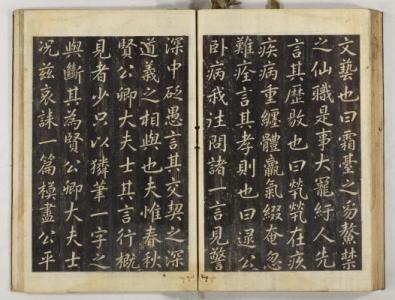 文藝也曰霜臺之豸鰲禁
之仙職是事大罷紆人先
言其歷敭也曰煢煢在疚
疾病重纏體羸氣綴奄忽
難痊言其孝則也曰逮公
卧病我往問諸一言見警
深中砭愚言其交契之深
道義之相與也夫惟春秋
賢公卿大夫士其言行概
見者少只以獜筆一字之
與斷其為賢公卿大夫士
况兹哀誄一篇模盡公平